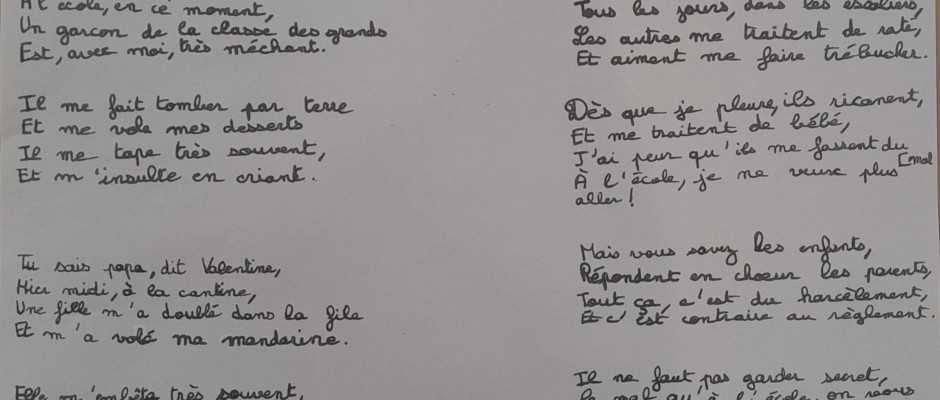 A l'école, en ce moment,
Un garçon de la classe des grands
Est, avec moi, très méchant.
Il me fait tomber par terre
Et me vole mes desserts
Il me tape très souvent,
Et m'insulte en criant.
Tu sais papa, dit Valentine,
Hier midi, à la cantine,
Une fille m'a doublé dans la file
Et m'a volé ma mandarine.
Elle m'embête très souvent,
Tous les jours, dans les escaliers,
Les autres me traitent de raté,
Et aiment me faire trébucher.
Dès que je pleure, ils ricanent,
Et me traitent de bébé,
J'ai peur qu'ils me fassent du
[mal
À l'école, je ne veux plus
aller !
Mais vous savez les enfants,
Répondent en choeur les parents,
Tout ça, c'est du harcèlement,
Et c'est contraire au règlement.
Il ne faut pas garder secret,
le mal qu'à l'école, on